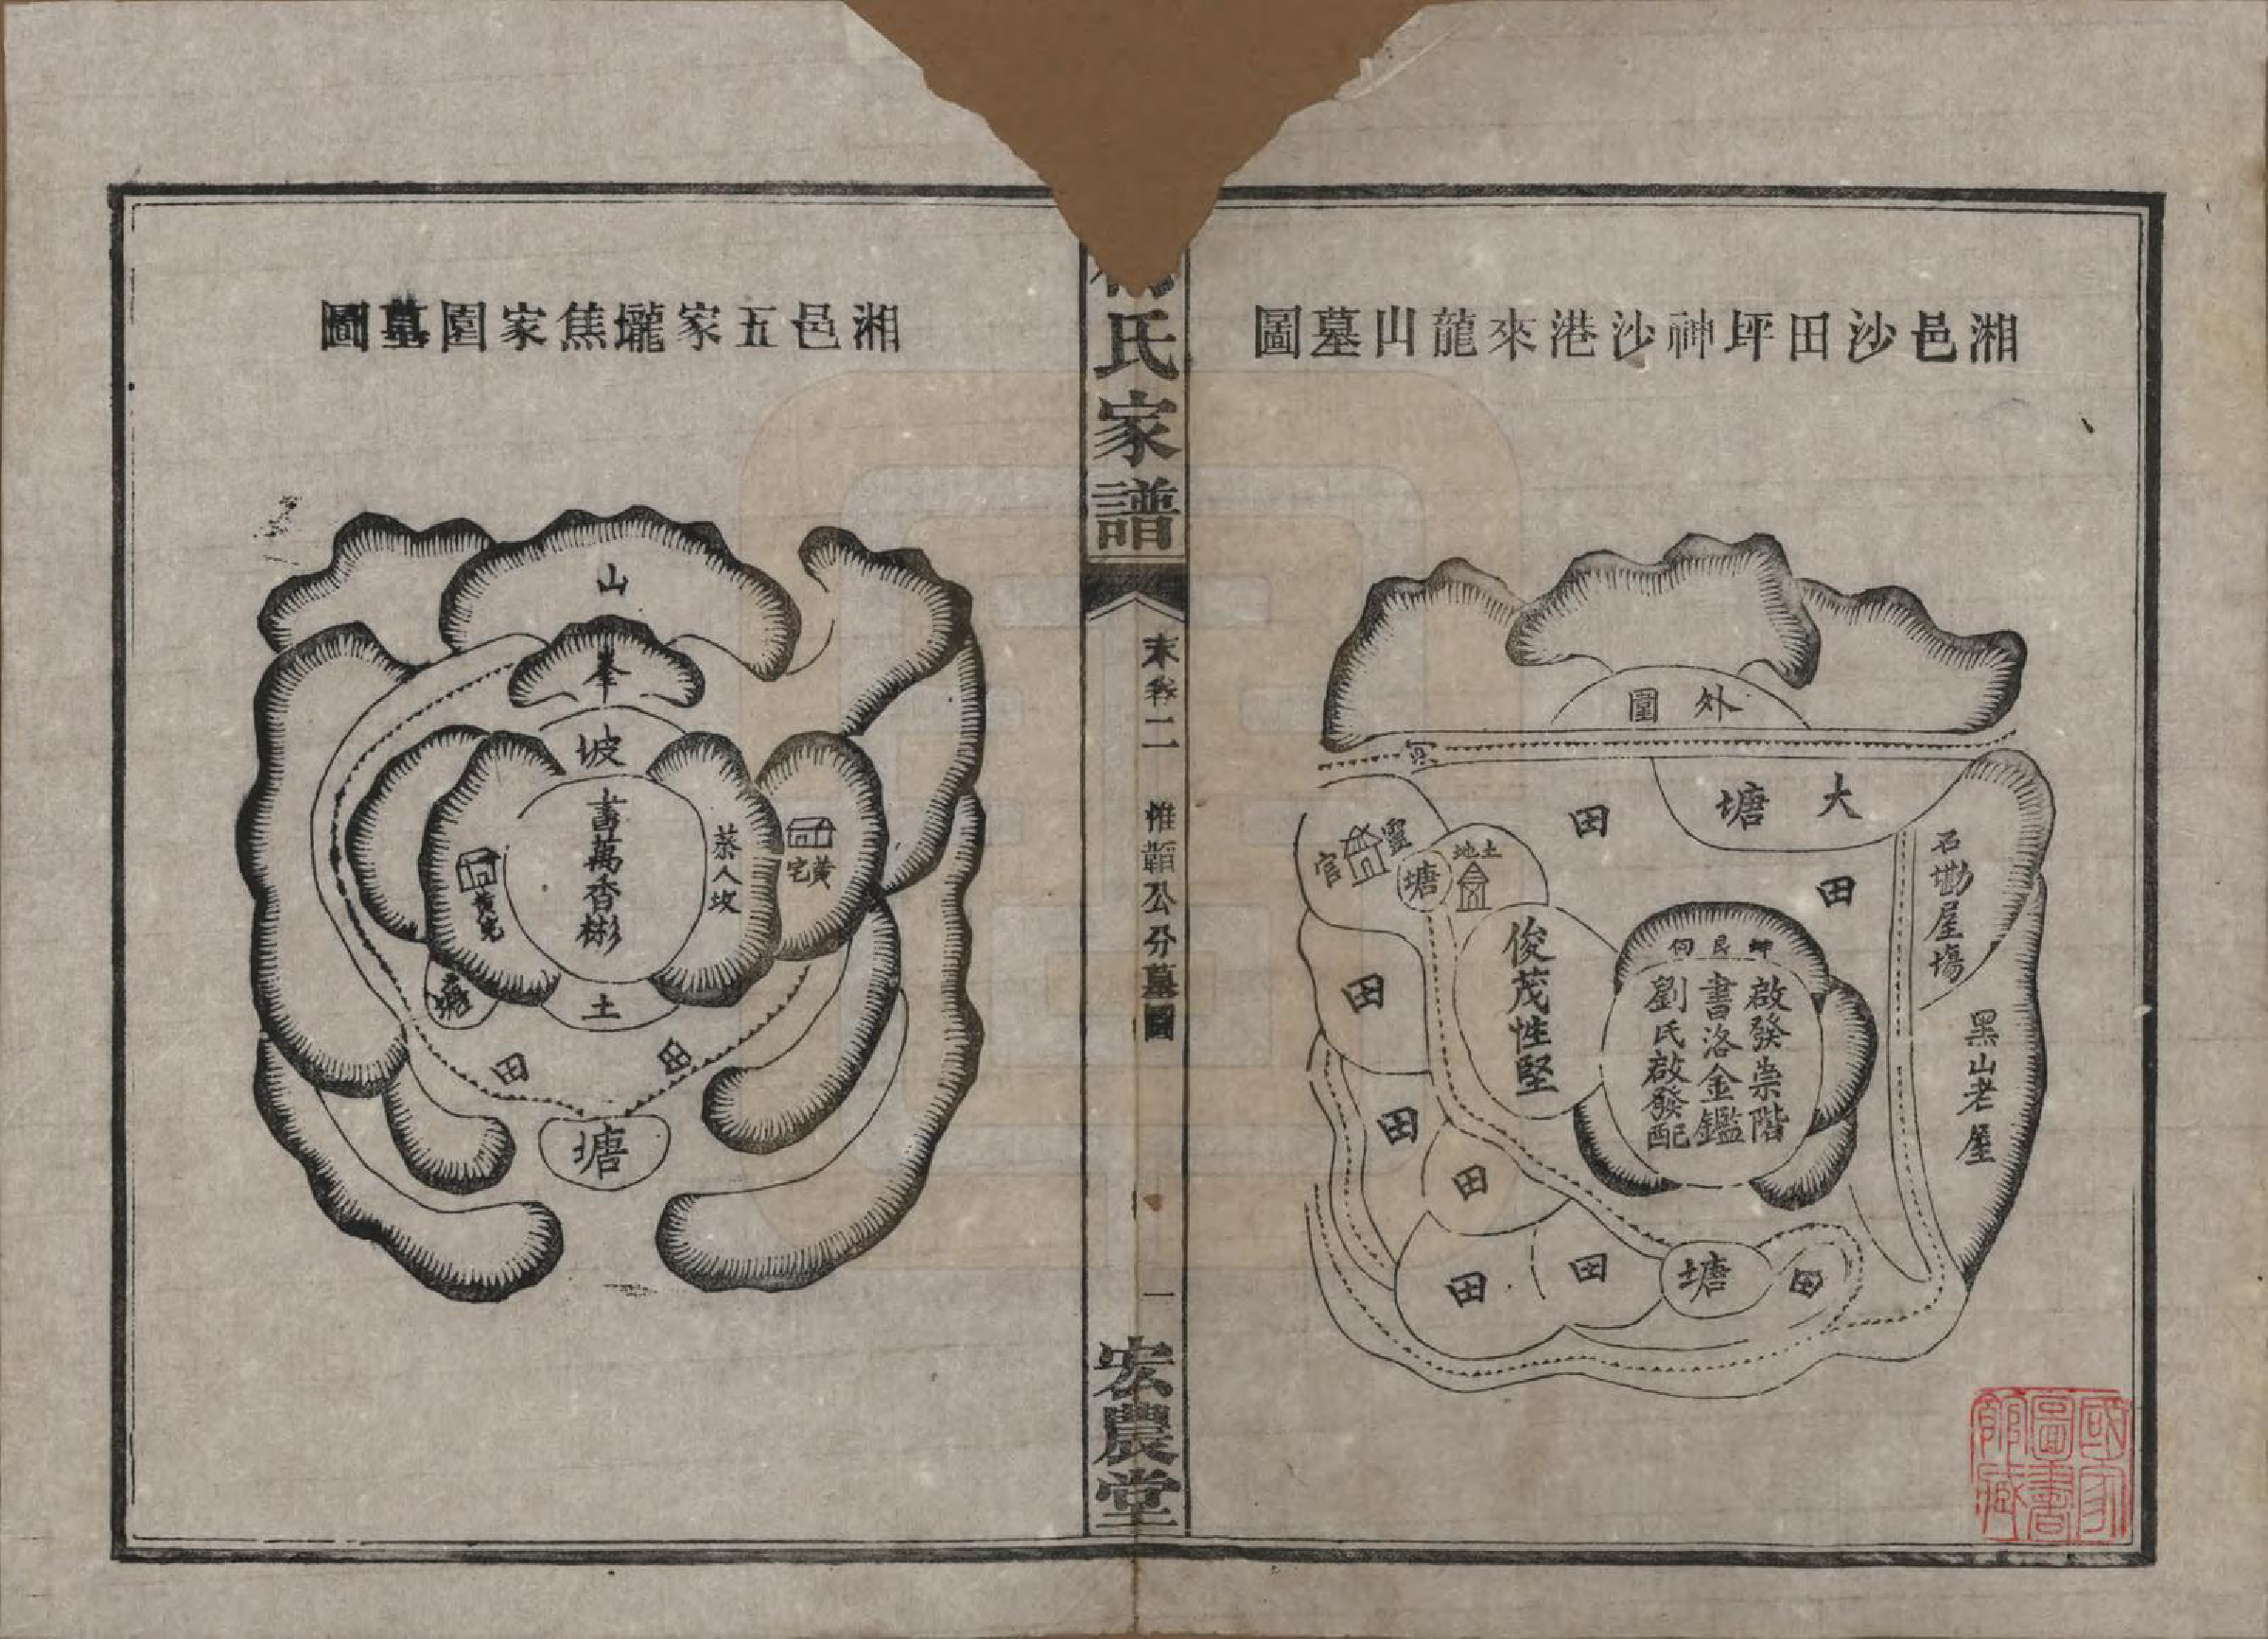 湘邑沙田坪神沙港來龍山墓圖
外圍
大塘
田
田
石墈屋塲
黑山老屋
靈官
塘
土地
俊茂性堅
坤艮向
啟發崇階
書洛金鑑
劉氏啟發配
田
田
田
田
田
塘
田
國家圖書館藏
氏家譜
末卷二
惟韜公分墓圖
一
宏農堂
湘邑五家壠焦家園墓圖
山
坡
書萬香彬
蔡人坟
黃宅
黃宅
塘
土
田
田
塘